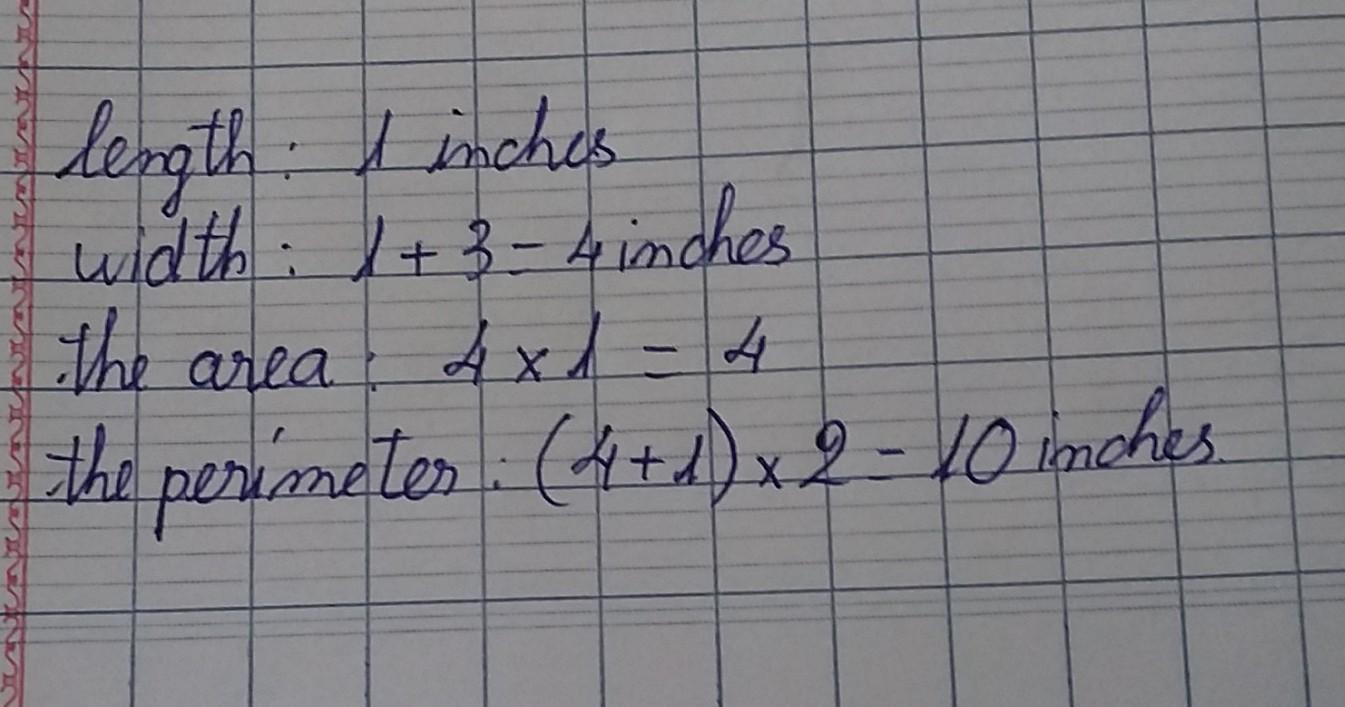 length: 1 inches
width: 1 + 3 = 4 inches
the area: 4 x 1 = 4
the perimeter: (4+1) x 2 = 10 inches.